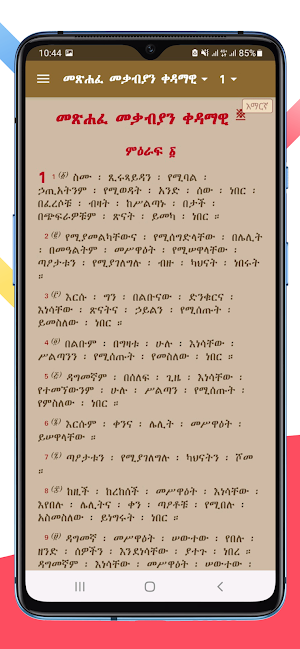 10:44
85%
መጽሐፈ መቃብያን ቀዳማዊ
1
አማርኛ
መጽሐፈ መቃብያን ቀዳማዊ ※
ምዕራፍ ፩
1 1 (፩) ስሙ ፡ ጺሩጻይዳን ፡ የሚባል ፡
ኃጢአትንም ፡ የሚወዳት ፡ አንድ ፡ ሰው ፡ ነበር ፡
በፈረሶቹ ፡ ብዛት ፡ ከሥልጣኑ ፡ በታች ፡
በጭፍራዎቹም ፡ ጽናት ፡ ይመካ ፡ ነበር ።
2 (፪) የሚያመልካቸውና ፡ የሚሰግድላቸው ፡ በሌሊት ፡
በመዓልትም ፡ መሥዋዕት ፡ የሚሠዋላቸው ፡
ጣዖታቱን ፡ የሚያገለግሉ ፡ ብዙ ፡ ካህናት ፡ ነበሩት
።
3 (፫) እርሱ ፡ ግን ፡ በልቡናው ፡ ድንቁርና ፡
እነሳቸው ፡ ጽናትና ፡ ኃይልን ፡ የሚሰጡት ፡
ይመስለው ፡ ነበር ።
4 (፬) በልቡም ፡ በግዛቱ ፡ ሁሉ ፡ እነሳቸው ፡
ሥልጣንን ፡ የሚሰጡት ፡ የመስለው ፡ ነበር ።
5 (፭) ዳግመኛም ፡ በሰለፍ ፡ ጊዜ ፡ እነሳቸው ፡
የተመኘውንም ፡ ሁሉ ፡ ሥልጣን ፡ የሚሰጡት ፡
የምስለው ፡ ነበር ።
6 (፮) እርሱም ፡ ቀንና ፡ ሌሊት ፡ መሥዋዕት ፡
ይሠዋላቸው ።
7 (፯) ጣዖታቱን ፡ የሚያገለግሉ ፡ ካህናትን ፡ ሾመ
።
8 (፰) ከዚች ፡ ከረከሰች ፡ መሥዋዕት ፡ እነሳቸው ፡
እየበሉ ፡ ሌሊትና ፡ ቀን ፡ ጣዖቶቹ ፡ የሚበሉ ፡
አስመስለው ፡ ይነግሩት ፡ ነበር ።
9 (፱) ዳግመኛ ፡ መሥዋዕት ፡ ሠውተው ፡ የበሉ ፡
ዘንድ ፡ ሰዎችን ፡ እንደነሳቸው ፡ ያተጉ ፡ ነበረ ።
ዳግመኛም ፡ እነሳቸው ፡ መሥዋዕት ፡ ሠውተው ፡